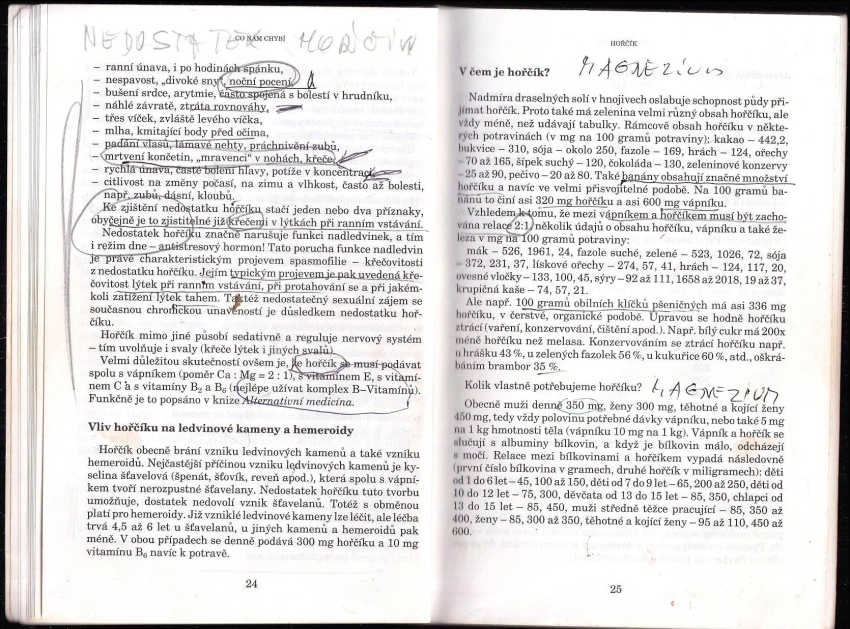 CO NÁM CHYBÍ
NEDOSTATEK HOŘČÍKU
– ranní únava, i po hodinách spánku,
– nespavost, „divoké sny“, noční pocení,
– bušení srdce, arytmie, často spojená s bolestí v hrudníku,
– náhlé závratě, ztráta rovnováhy,
– třes víček, zvláště levého víčka,
– mlha, kmitající body před očima,
– padání vlasů, lámavé nehty, práchnivění zubů,
– mrtvení končetin, „mravenci“ v nohách, křeče,
– rychlá únava, časté bolení hlavy, potíže v koncentraci,
– citlivost na změny počasí, na zimu a vlhkost, často až bolesti,
např. zubů, dásní, kloubů.
Ke zjištění nedostatku hořčíku stačí jeden nebo dva příznaky,
obyčejně je to zjistitelné již křečemi v lýtkách při ranním vstávání.
Nedostatek hořčíku značně narušuje funkci nadledvinek, a tím
i režim dne – antistresový hormon! Tato porucha funkce nadledvin
je právě charakteristickým projevem spasmofilie – křečovitosti
z nedostatku hořčíku. Jejím typickým projevem je pak uvedená kře-
čovitost lýtek při ranním vstávání, při protahování se a při jakém-
koli zatížení lýtek tahem. Taktéž nedostatečný sexuální zájem se
současnou chronickou unaveností je důsledkem nedostatku hoř-
číku.
Hořčík mimo jiné působí sedativně a reguluje nervový systém
– tím uvolňuje i svaly (křeče lýtek i jiných svalů).
Velmi důležitou skutečností ovšem je, že hořčík se musí podávat
spolu s vápníkem (poměr Ca : Mg = 2 : 1), s vitamínem E, s vitamí-
nem C a s vitamíny B₂ a B₆ (nejlépe užívat komplex B–Vitamínů).
Funkčně je to popsáno v knize Alternativní medicína.
Vliv hořčíku na ledvinové kameny a hemeroidy
Hořčík obecně brání vzniku ledvinových kamenů a také vzniku
hemeroidů. Nejčastější příčinou vzniku ledvinových kamenů je ky-
selina šťavelová (špenát, šťovík, reveň apod.), která spolu s vápní-
kem tvoří nerozpustné šťavelany. Nedostatek hořčíku tuto tvorbu
umožňuje, dostatek nedovolí vznik šťavelanů. Totéž s obměnou
platí pro hemeroidy. Již vzniklé ledvinové kameny lze léčit, ale léčba
trvá 4,5 až 6 let u šťavelanů, u jiných kamenů a hemeroidů pak
méně. V obou případech se denně podává 300 mg hořčíku a 10 mg
vitamínu B₆ navíc k potravě.
24
HOŘČÍK
V čem je hořčík? MAGNEZIUM
Nadmíra draselných solí v hnojivech oslabuje schopnost půdy při-
jímat hořčík. Proto také má zelenina velmi různý obsah hořčíku, ale
vždy méně, než udávají tabulky. Rámcově obsah hořčíku v někte-
rých potravinách (v mg na 100 gramů potraviny): kakao – 442,2,
bukvice – 310, sója – okolo 250, fazole – 169, hrách – 124, ořechy
– 70 až 165, šípek suchý – 120, čokoláda – 130, zeleninové konzervy
– 25 až 90, pečivo – 20 až 80. Také banány obsahují značné množství
hořčíku a navíc ve velmi přisvojitelné podobě. Na 100 gramů ba-
nánu to činí asi 320 mg hořčíku a asi 600 mg vápníku.
Vzhledem k tomu, že mezi vápníkem a hořčíkem musí být zacho-
vána relace 2:1, několik údajů o obsahu hořčíku, vápníku a také že-
leza v mg na 100 gramů potraviny:
mák – 526, 1961, 24, fazole suché, zelené – 523, 1026, 72, sója
– 372, 231, 37, lískové ořechy – 274, 57, 41, hrách – 124, 117, 20,
ovesné vločky – 133, 100, 45, sýry – 92 až 111, 1658 až 2018, 19 až 37,
krupičná kaše – 74, 57, 21.
Ale např. 100 gramů obilních klíčků pšeničných má asi 336 mg
hořčíku, v čerstvé, organické podobě. Úpravou se hodně hořčíku
ztrácí (vaření, konzervování, čištění apod.). Např. bílý cukr má 200x
méně hořčíku než melasa. Konzervováním se ztrácí hořčíku např.
u hrášku 43 %, u zelených fazolek 56 %, u kukuřice 60 %, atd., oškrá-
báním brambor 35 %.
Kolik vlastně potřebujeme hořčíku? MAGNEZIUM
Obecně muži denně 350 mg, ženy 300 mg, těhotné a kojící ženy
450 mg, tedy vždy polovinu potřebné dávky vápníku, nebo také 5 mg
na 1 kg hmotnosti těla (vápníku 10 mg na 1 kg). Vápník a hořčík se
slučují s albuminy bílkovin, a když je bílkovin málo, odcházejí
s močí. Relace mezi bílkovinami a hořčíkem vypadá následovně
(první číslo bílkovina v gramech, druhé hořčík v miligramech): děti
od 1 do 6 let – 45, 100 až 150, děti od 7 do 9 let – 65, 200 až 250, děti od
10 do 12 let – 75, 300, děvčata od 13 do 15 let – 85, 350, chlapci od
13 do 15 let – 85, 450, muži středně těžce pracující – 85, 350 až
400, ženy – 85, 300 až 350, těhotné a kojící ženy – 95 až 110, 450 až
600.
25